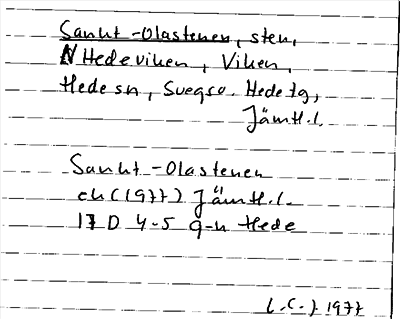 Sankt-Olastenen, sten,
N Hedeviken, Viken,
Hede sn, Svegs o. Hede tg,
Jämtl.l.
Sankt-Olastenen
ek (1977) Jämtl.l.
17D 4-5 g-h Hede
1977